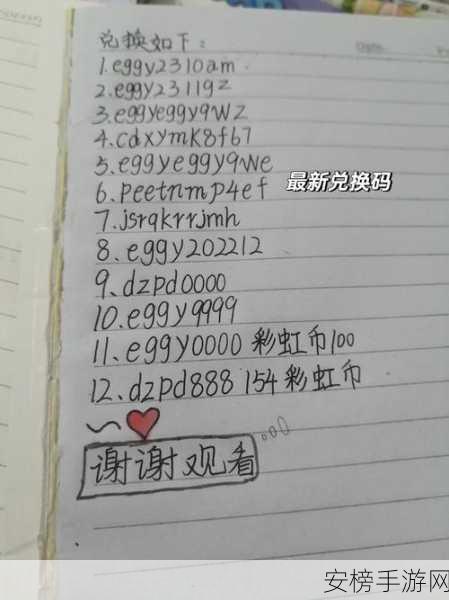 兑换如下：
1.eggy2310am
2.eggy2311gz
3.eggyeggy9wz
4.cdxymk8f67
5.eggyeggy9we
6.peetnmp4ef
最新兑换码
7.jsrqkrrjmh
8.eggy202212
9.dzpd0000
10.eggy9999
11.eggy0000 彩虹币100
12.dzpd888 154彩虹币
谢谢观看
安榜手游网